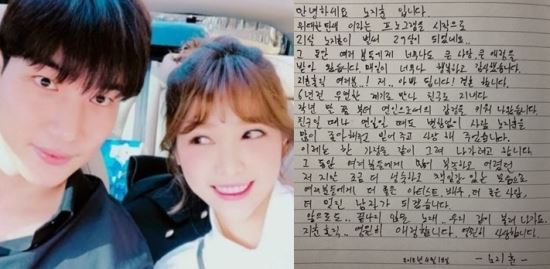 안녕하세요 노지훈 입니다
위대한탄생 이라는 프로그램을 시작으로
21살 노지훈이 벌써 29살이 되었네요..
그 동안 여러분들에게 너무나도 큰 사랑, 큰 애정을
받아 왔습니다. 매일이 너무나 행복하고 감사했습니다.
지훈홀릭 여러분..! 저.. 아빠 됩니다! 결혼 합니다.
6년전 우연한 계기로 만나 친구로 지내다.
작년 말 쯤 부터 연인으로서의 감정을 키워 나갔습니다.
친구일 때나 연인일 때도 변함없이 사람 노지훈을
많이 좋아해주고 믿어 주고 사랑 해 주었습니다.
이제는 한 가정을 같이 그려 나가려고 합니다.
그 동안 여러분들에게 많이 부족하고 어렸던
저 지만 조금 더 성숙하고 책임감 있는 모습으로
여러분들에게 더 좋은 아티스트, 배우, 더 좋은 사람,
더 멋진 남자가 되겠습니다.
앞으로도.. 끝나지 않는 노래.. 우리 같이 불러 나가요.
지훈홀릭.. 영원히 애정합니다. 영원히 사랑합니다.
2018년 4월 18일 - 노지훈 -